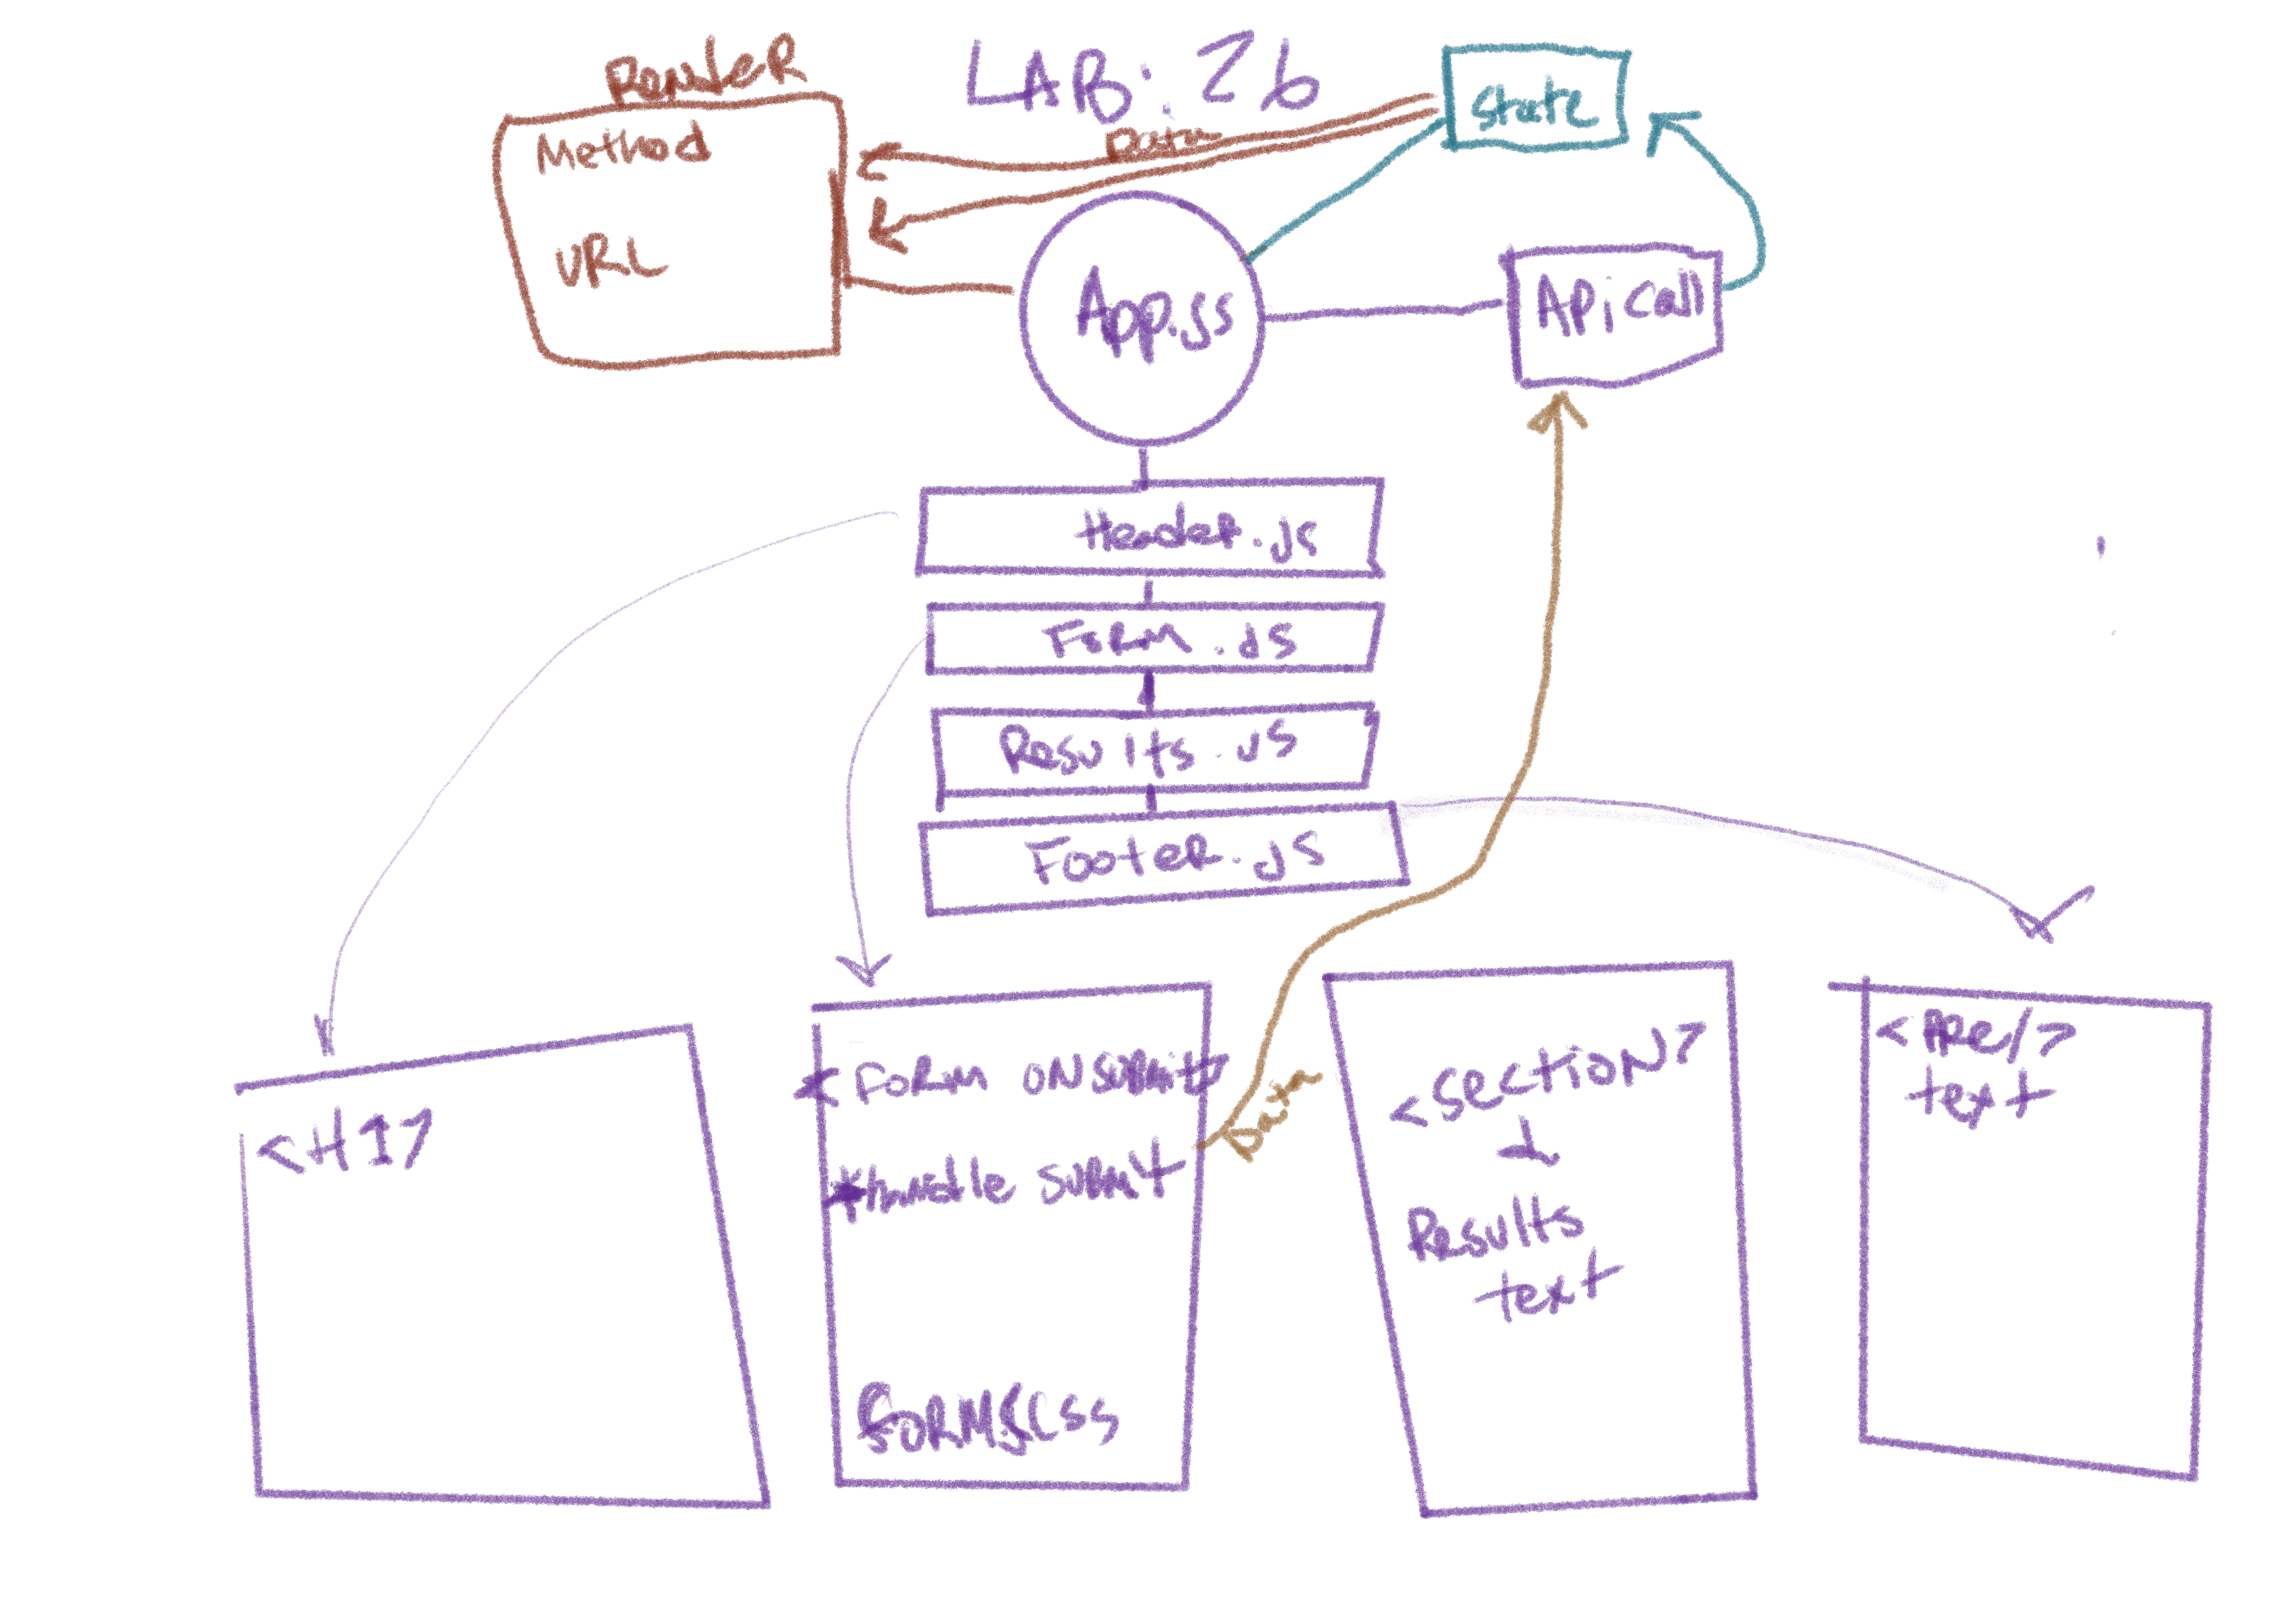 LAB: 26
RendeR
Method
URL
Data
State
App.js
APi Call
Header.js
Form.js
Results.js
Footer.js
<H1>
<Form onsubmit>
*handle submit
FormSCSS
Data
<section>
Results
text
<PRe/>
text